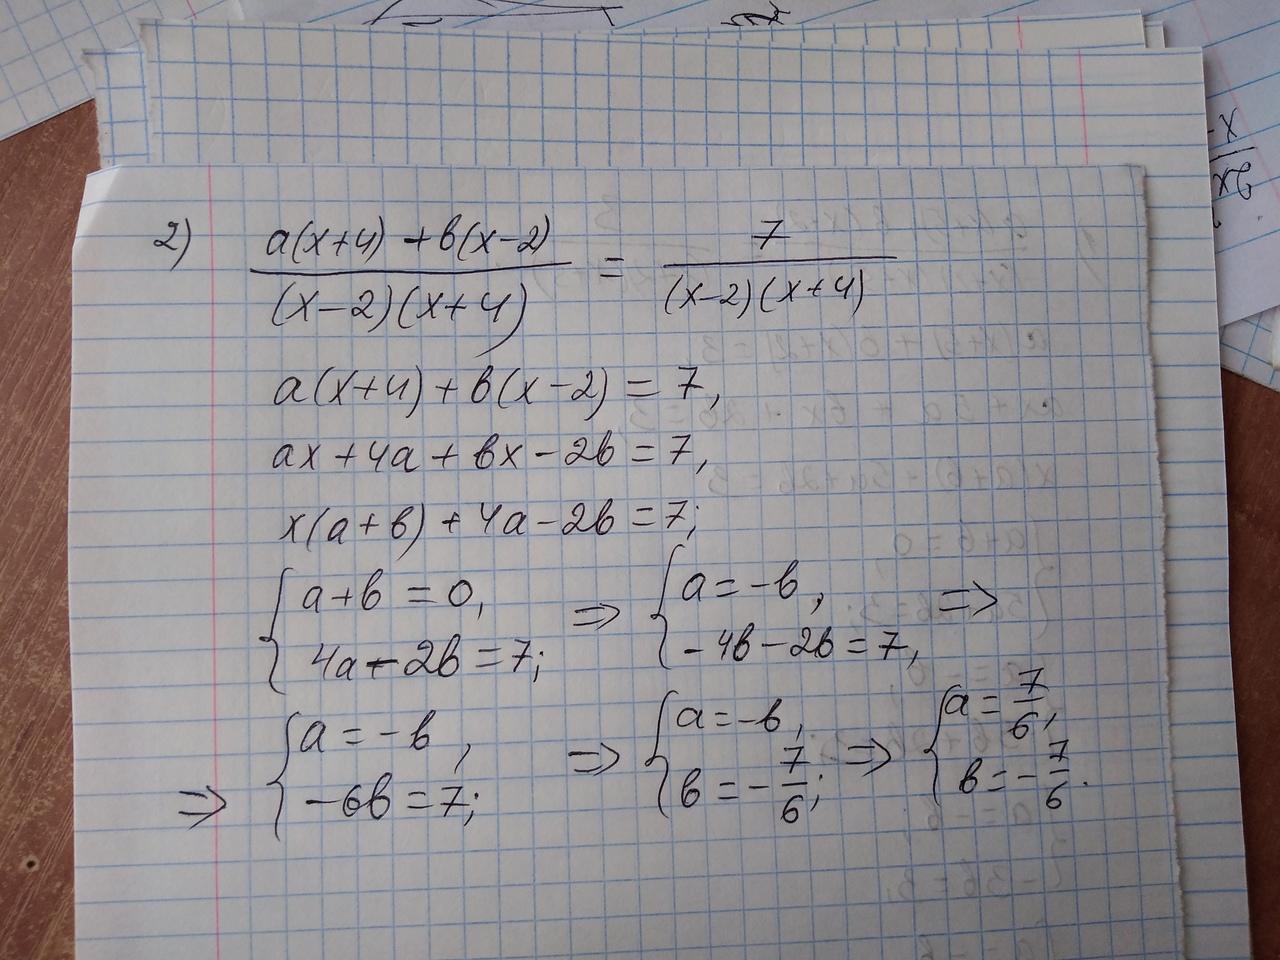 2) a(x+4) + b(x-2) / (x-2)(x+4) = 7 / (x-2)(x+4)
a(x+4) + b(x-2) = 7,
ax + 4a + bx - 2b = 7,
x(a+b) + 4a - 2b = 7;
{ a+b = 0, 4a - 2b = 7; ⇒ { a = -b, -4b - 2b = 7, ⇒
⇒ { a = -b, -6b = 7; ⇒ { a = -b, b = -7/6; ⇒ { a = 7/6, b = -7/6.